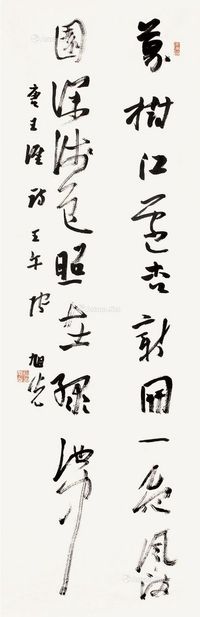 萬樹江邊杏新開一夜風滿
園深淺色照在緑波中
唐王涯詩壬午旭光